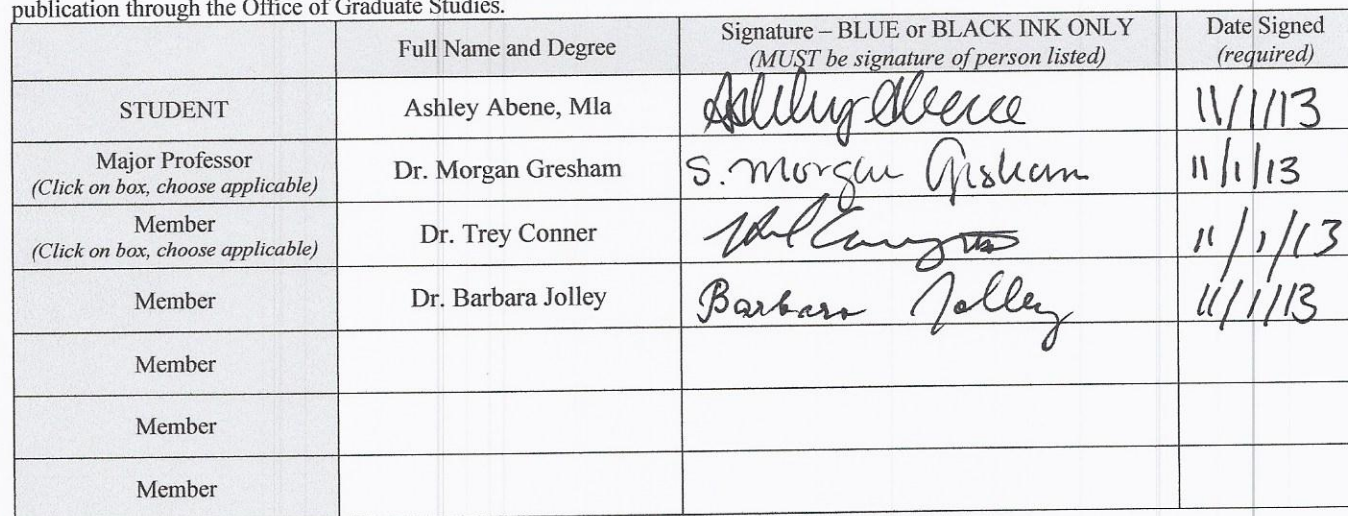 publication through the Office of Graduate Studies.
Full Name and Degree
Signature – BLUE or BLACK INK ONLY
(MUST be signature of person listed)
Date Signed
(required)
STUDENT
Ashley Abene, Mla
Ashley Abene
11/1/13
Major Professor
(Click on box, choose applicable)
Dr. Morgan Gresham
S. Morgan Gresham
11/1/13
Member
(Click on box, choose applicable)
Dr. Trey Conner
11/1/13
Member
Dr. Barbara Jolley
Barbara Jolley
11/1/13
Member
Member
Member